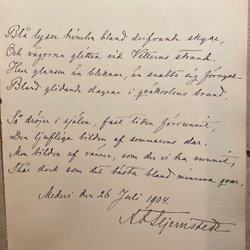 Blå lyser himlen bland drifvande skyar,
Och vågorna glittra vid Vetterns strand.
Hur glansen än bleknar, än snabbt sig förnyar
Bland glidande dagrar i
Så dröjer i själen, fast tiden försvunnit,
Den ljufliga bilden af sommarens dar.
Men bilden af vänner, som der vi ha vunnit,
Skal dock som det bästa bland minnena qvar.
Medevi den 26 Juli 1904.
Stjernstedt